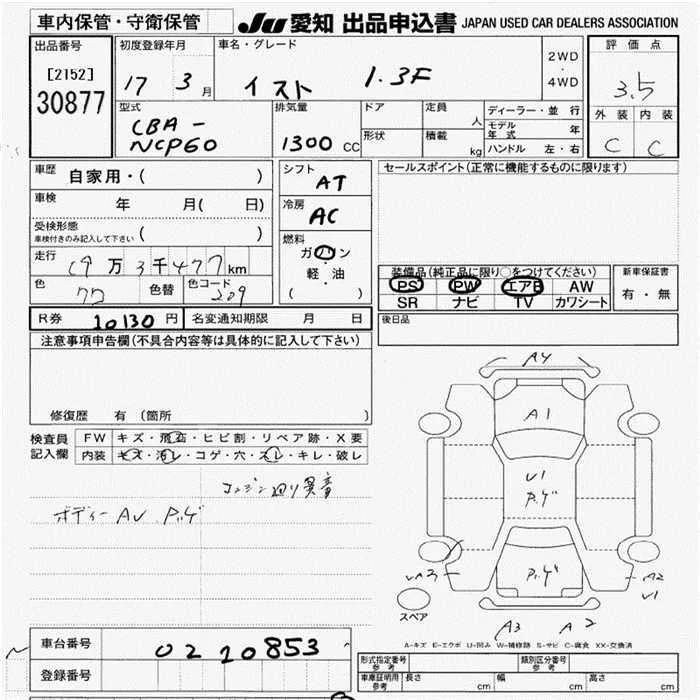 車内保管・守衛保管 JU 愛知 出品申込書 JAPAN USED CAR DEALERS ASSOCIATION
出品番号 [2152] 30877
初度登録年月 17 3月
車名・グレード イスト 1.3F
2WD・4WD
評価点 3.5
外装 内装
C C
型式 CBA-NCP60
排気量 1300 CC
ドア 定員 人
形状 積載 kg
ディーラー・並行
モデル年式 年
ハンドル 左・右
車歴 自家用・( )
車検 年 月( 日)
受検形態 ( )
車検付きのみ記入して下さい
走行 19万3千477km
色 色替 色コード 209
シフト AT
冷房 AC
燃料 ガソリン・軽油
( )
セールスポイント(正常に機能するものに限ります)
装備品(純正品に限り○をつけてください)
PS PW エアB AW
SR ナビ TV カワシート
新車保証書
有・無
後日品
R券 10130円 名変通知期限 月 日
注意事項申告欄(不具合内容等は具体的に記入して下さい)
修復歴 有(箇所 )
検査員記入欄
FW キズ・飛石・ヒビ割・リペア跡・X要
内装 キズ・汚レ・コゲ・穴・スレ・キレ・破レ
エンジン廻り異音
ボディー AU P.ハゲ
A4
A1
U1
P.ハゲ
P.ハゲ
UA3
A2
U1
A3 A2
スペア
A-キズ E-エクボ U-凹み W-補修跡 S-サビ C-腐食 XX-交換済
車台番号 0220853
登録番号
形式指定番号 参考 類別区分番号 参考
車庫証明用 参考 長さ cm 幅 cm 高さ cm